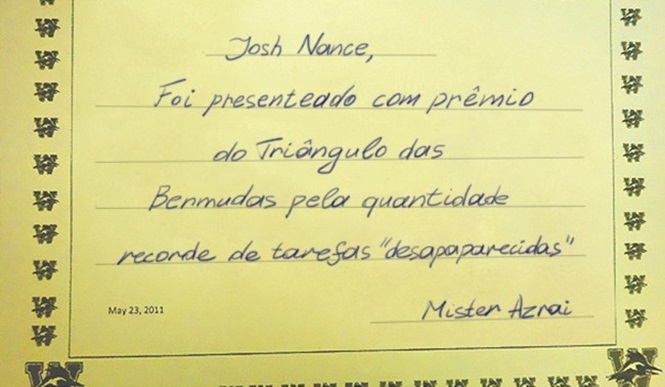 Josh Nance,
Foi presenteado com prêmio
do Triângulo das
Bermudas pela quantidade
recorde de tarefas "desapaparecidas"
May 23, 2011
Mister Azrai